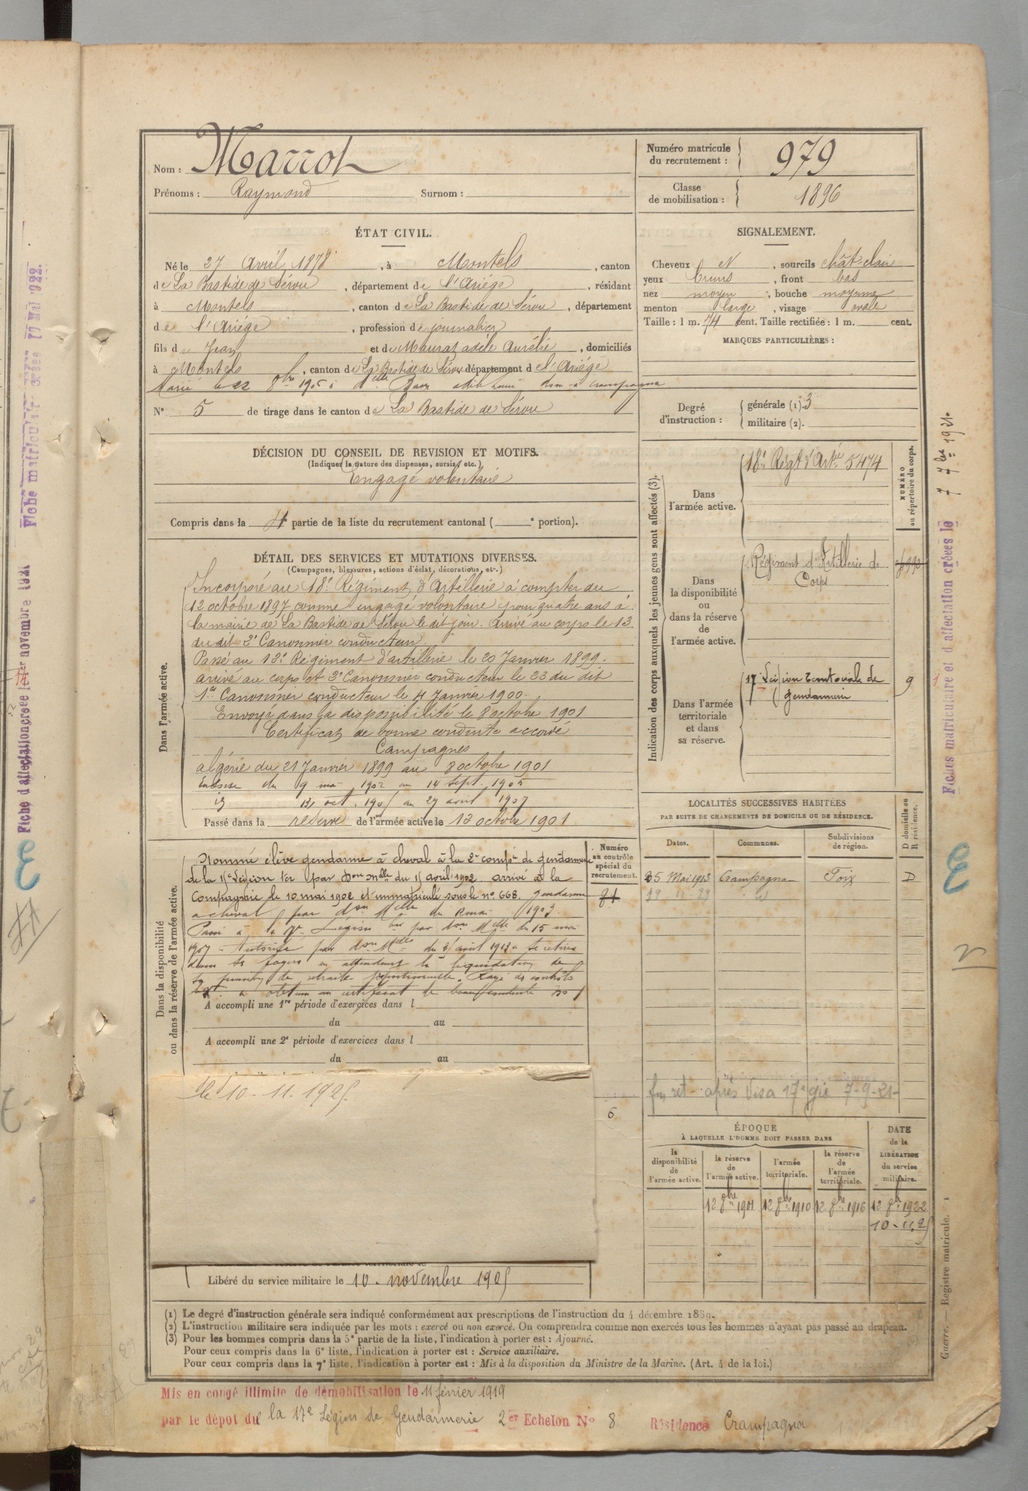 Nom : Marrot
Prénoms : Raymond Surnom :
Numéro matricule du recrutement : 979
Classe de mobilisation : 1896
ÉTAT CIVIL.
Né le 27 Avril 1878, à Montels, canton
de La Bastide de Sérou, département de l'Ariége, résidant
à Montels, canton de La Bastide de Sérou, département
de l'Ariége, profession de journalier
fils de Jean et de Maurat adèle Aurélie, domiciliés
à Montels, canton de La Bastide de Sérou département d l'Ariége
Marié le 22 8bre 1905 à Melle
N° 5 de tirage dans le canton de La Bastide de Sérou
SIGNALEMENT.
Cheveux N, sourcils chât clair
yeux bruns, front bas
nez moyen, bouche moyenne
menton large, visage ovale
Taille : 1 m. 74 cent. Taille rectifiée : 1 m. cent.
MARQUES PARTICULIÈRES :
Degré d'instruction : générale (1) 3
militaire (2).
DÉCISION DU CONSEIL DE REVISION ET MOTIFS.
(Indiquer la nature des dispenses, sursis, etc.)
Engagé volontaire
Compris dans la 4e partie de la liste du recrutement cantonal ( e portion).
DÉTAIL DES SERVICES ET MUTATIONS DIVERSES.
(Campagnes, blessures, actions d'éclat, décorations, etc.)
Dans l'armée active.
Incorporé au 18e Régiment d'Artillerie à compter du
12 octobre 1897 comme engagé volontaire pour quatre ans à
la mairie de La Bastide de Sérou le dit jour. Arrivé au corps le 13
du dit 2e Canonnier conducteur
Passé au 13e Régiment d'artillerie le 20 Janvier 1899.
arrivé au corps et 2e Canonnier conducteur le 23 du dit
1er Canonnier conducteur le 4 Janvier 1900.
Envoyé dans la disponibilité le 8 octobre 1901
Certificat de bonne conduite accordé
Campagnes
Algérie du 21 Janvier 1899 au 8 octobre 1901
du 9 mai 1902 au 14 sept 1905
oct. 1905 au 29 août 1907
Passé dans la réserve de l'armée active le 12 octobre 1901
Indication des corps auxquels les jeunes gens sont affectés (3).
NUMÉRO au répertoire du corps.
Dans l'armée active.
18e Régt d'Artie 5474
Dans la disponibilité ou dans la réserve de l'armée active.
Régiment d'Artillerie de Corps
Dans l'armée territoriale et dans sa réserve.
17 Légion Territoriale de gendarmerie 9
Dans la disponibilité ou dans la réserve de l'armée active.
Nommé élève gendarme à cheval à la 2e compie de gendarmerie
de la Légion par don Melle du 11 avril 1902 arrivé à la
Compagnie le 10 mai 1902 et immatriculé sous le n° 668. Gendarme
à cheval par don Melle du 1903
Passé à la 17e Légion par don Melle du 15 mai
1907 - Autorisé par don Melle du août 1913 à se retirer
dans ses foyers en attendant la liquidation de
sa pension de retraite proportionnelle. Rayé des contrôles
Numéro au contrôle spécial du recrutement.
A accompli une 1re période d'exercices dans l
du au
A accompli une 2e période d'exercices dans l
du au
le 10-11-1925
6
LOCALITÉS SUCCESSIVES HABITÉES
PAR SUITE DE CHANGEMENTS DE DOMICILE OU DE RÉSIDENCE.
Dates. Communes. Subdivisions de région. D domicile ou R résidence.
25 Mai 1913 Crampagna Foix D
après visa 17e gie 7-9-21
ÉPOQUE
À LAQUELLE L'HOMME DOIT PASSER DANS
la disponibilité de l'armée active.
la réserve de l'armée active.
l'armée territoriale.
la réserve de l'armée territoriale.
DATE de la LIBÉRATION du service militaire.
12 8bre 1901 12 8bre 1910 12 8bre 1916 12 8bre 1922
10-11-25
Libéré du service militaire le 10 novembre 1925
(1) Le degré d'instruction générale sera indiqué conformément aux prescriptions de l'instruction du 4 décembre 1889.
(2) L'instruction militaire sera indiquée par les mots : exercé ou non exercé. On comprendra comme non exercés tous les hommes n'ayant pas passé au drapeau.
(3) Pour les hommes compris dans la 5e partie de la liste, l'indication à porter est : Ajourné.
Pour ceux compris dans la 6e liste, l'indication à porter est : Service auxiliaire.
Pour ceux compris dans la 7e liste, l'indication à porter est : Mis à la disposition du Ministre de la Marine. (Art. 4 de la loi.)
Mis en congé illimité de démobilisation le 11 février 1919
par le dépot du la 17e Légion de Gendarmerie 2er Echelon N° 8 Résidence Crampagna
Guerre. Registre matricule. 1
Fiches matriculaire et d'affectation créées le 7 7bre 1921
Fiche d'affectation créée le 1er novembre 1921
Fiche matriculaire créée le 10 Mai 1922.